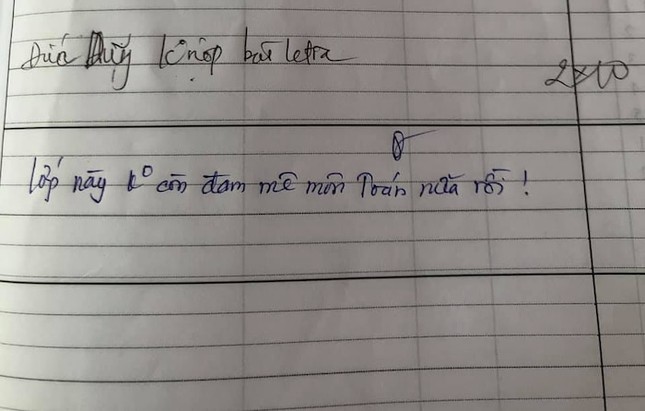 Đức Duy k° nộp bài
2x10
Lớp này k° còn đam mê môn Toán nữa rồi!